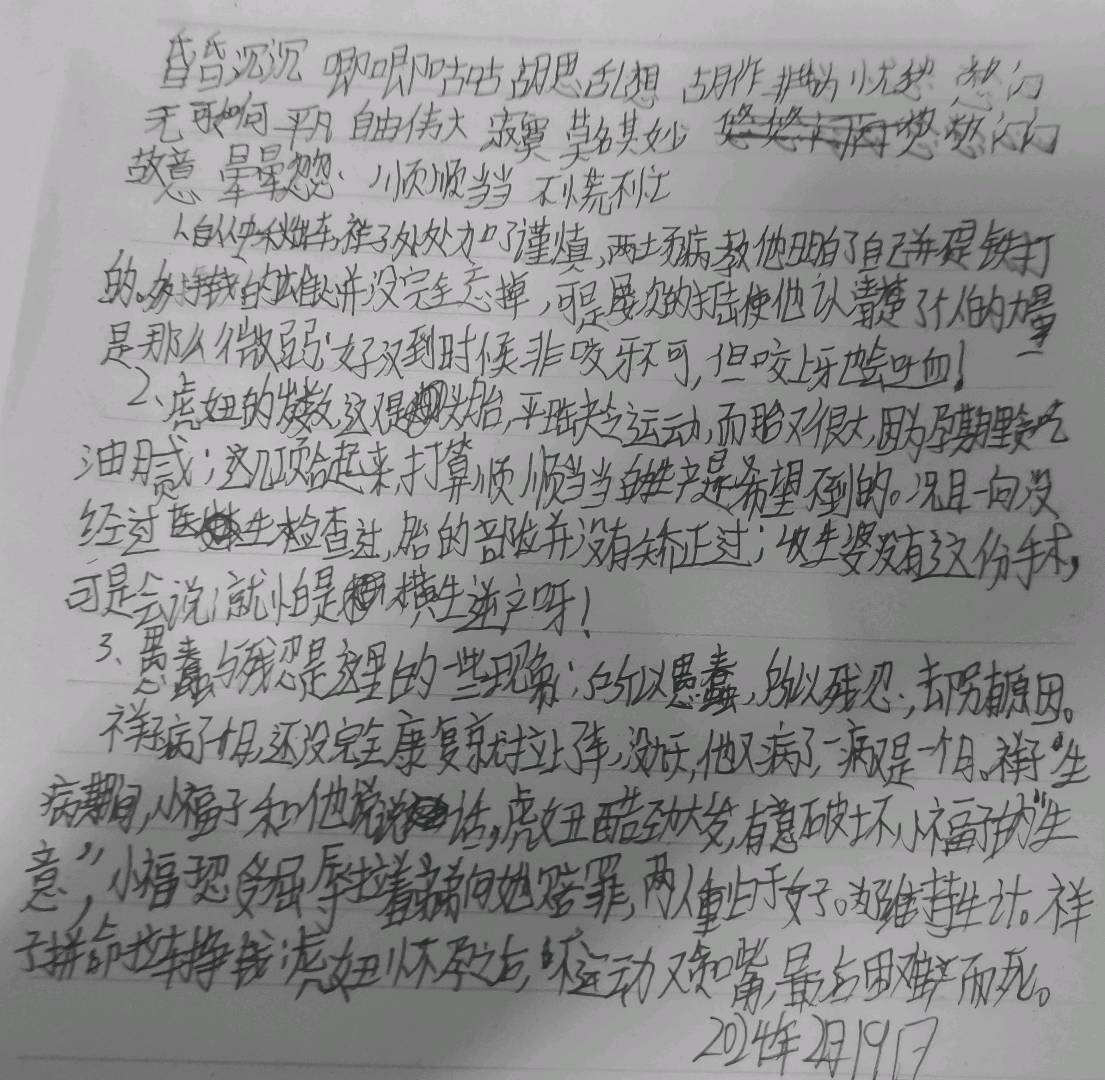 昏昏沉沉 唧唧咕咕 胡思乱想 胡作非为 小尤愁 愁闷
无可如何 平凡 自由伟大 寂寞 莫名其妙 愁愁闷闷
故意 晕晕忽忽 顺顺当当 不慌不忙
祥子处处加了谨慎,两场病教他明白了自己并不是铁打
的。多挣钱的雄心并没完全忘掉,可是屡次的打击使他认清楚了个人的力量
是那么微弱;好汉到时候非咬牙不可,但咬上牙也会吐血!
2、虎妞的岁数,这又是头胎,平日缺乏运动,而胎又很大,因为孕期里贪吃
油腻;这几项合起来,打算顺顺当当的生产是希望不到的。况且一向没
经过医生检查过,胎的部位并没有矫正过;收生婆没有这份手术,
可是会说:就怕是横生逆产呀!
3、愚蠢与残忍是这里的一些现象;所以愚蠢,所以残忍,却另有原因。
祥子病了一个月,还没完全康复就拉上了车,没几天,他又病了,一病又是一个月。祥子生
病期间,小福子和他说说话,虎妞醋劲大发,有意破坏小福子的“生
意”,小福子忍令屈辱拉着弟弟向她赔罪,两人重归于好。为维持生计。祥
子拼命拉车挣钱;虎妞怀孕之后,不运动又贪嘴,最后因难产而死。
2024年2月19日